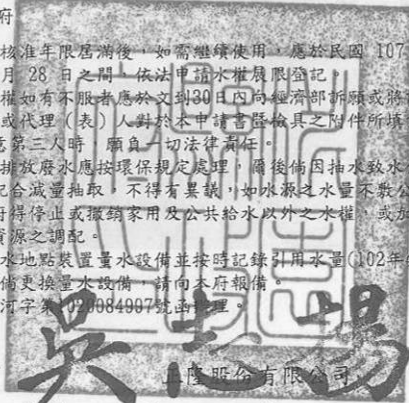 府
核准年限屆滿後，如需繼續使用，應於民國 107
月 28 日之間，依法申請水權展限登記。
權如有不服者應於文到30日內向經濟部訴願或將
或代理（表）人對於本申請書暨檢具之附件所填
意第三人時 願負一切法律責任。
排放廢水應按環保規定處理，爾後倘因抽水致水
配合減量抽取，不得有異議，如水源之水量不敷公
府得停止或撤銷家用及公共給水以外之水權，或加
資源之調配。
水地點裝置量水設備並按時記錄引用水量(102年
倘更換量水設備，請向本府報備。
河字第1020084907號函辦理。
吳志揚
正隆股份有限公司